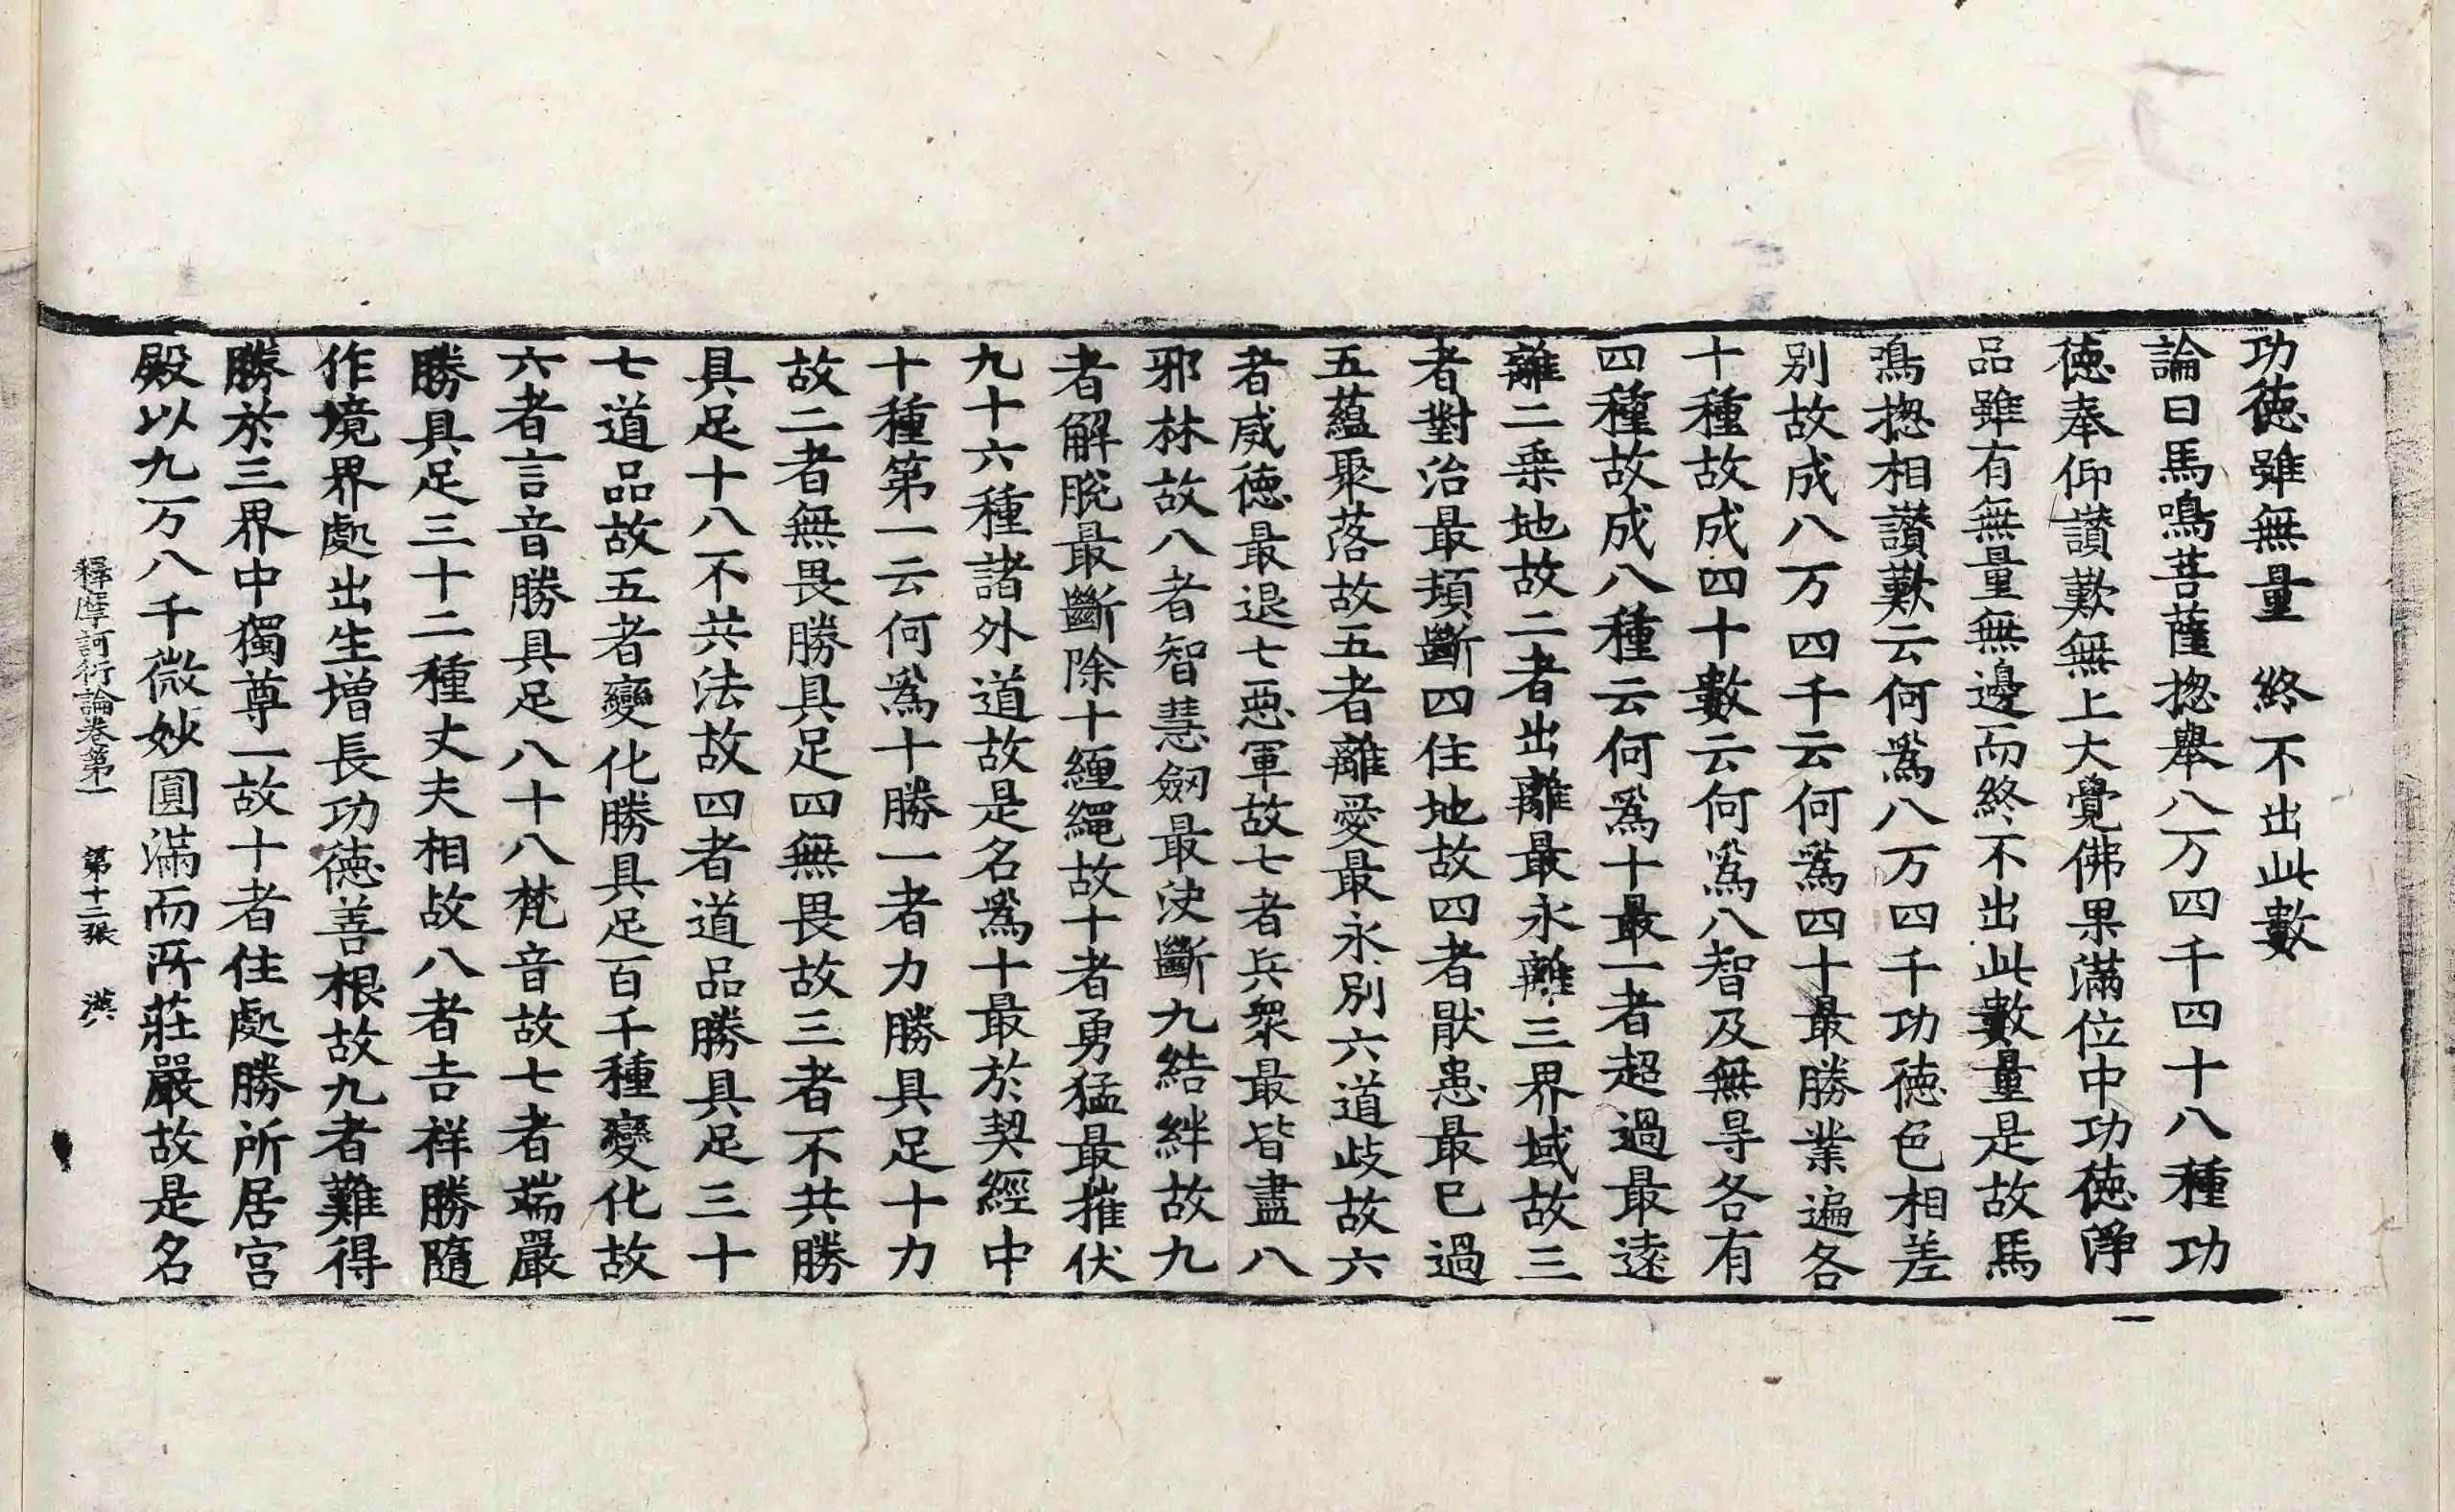 功德雖無量　終不出此數
論曰馬鳴菩薩揔舉八万四千四十八種功
德奉仰讃歎無上大覺佛果滿位中功德淨
品雖有無量無邊而終不出此數量是故馬
鳴揔相讃歎云何爲八万四千功德色相差
別故成八万四千云何爲四十最勝業遍各
十種故成四十數云何爲八智及無㝵各有
四種故成八種云何爲十最一者超過最遠
離二乘地故二者出離最永離三界域故三
者對治最頓斷四住地故四者猒患最已過
五蘊聚落故五者離愛最永別六道歧故六
者威德最退七惡軍故七者兵衆最皆盡八
邪林故八者智慧劒最決斷九結絆故九
者解脫最斷除十纏繩故十者勇猛最摧伏
九十六種諸外道故是名爲十最於契經中
十種第一云何爲十勝一者力勝具足十力
故二者無畏勝具足四無畏故三者不共勝
具足十八不共法故四者道品勝具足三十
七道品故五者變化勝具足百千種變化故
六者言音勝具足八十八梵音故七者端嚴
勝具足三十二種丈夫相故八者吉祥勝隨
作境界處出生增長功德善根故九者難得
勝於三界中獨尊一故十者住處勝所居宮
殿以九万八千微妙圓滿而所莊嚴故是名
釋摩訶衍論卷第一　第十二張　漠